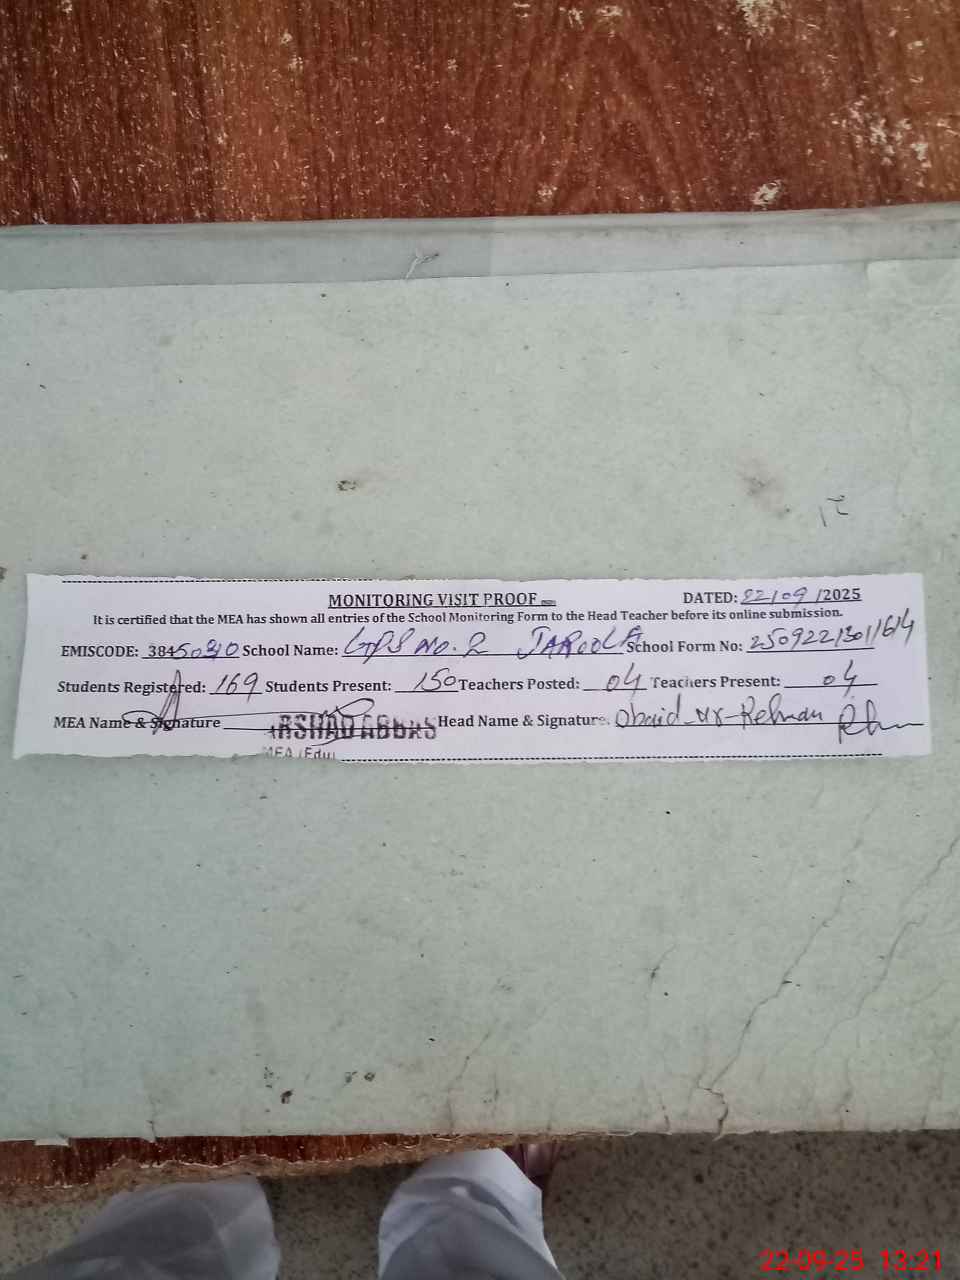 MONITORING VISIT PROOF
DATED: 22/09/2025
It is certified that the MEA has shown all entries of the School Monitoring Form to the Head Teacher before its online submission.
EMISCODE: 38450310 School Name: GPS No. 2 School Form No:
Students Registered: 169 Students Present: 150 Teachers Posted: 04 Teachers Present: 04
MEA Name & Signature ARSHAD ABBAS Head Name & Signature. Obaid-ur-Rehman
MEA (Edu)
22-09-25 13:21